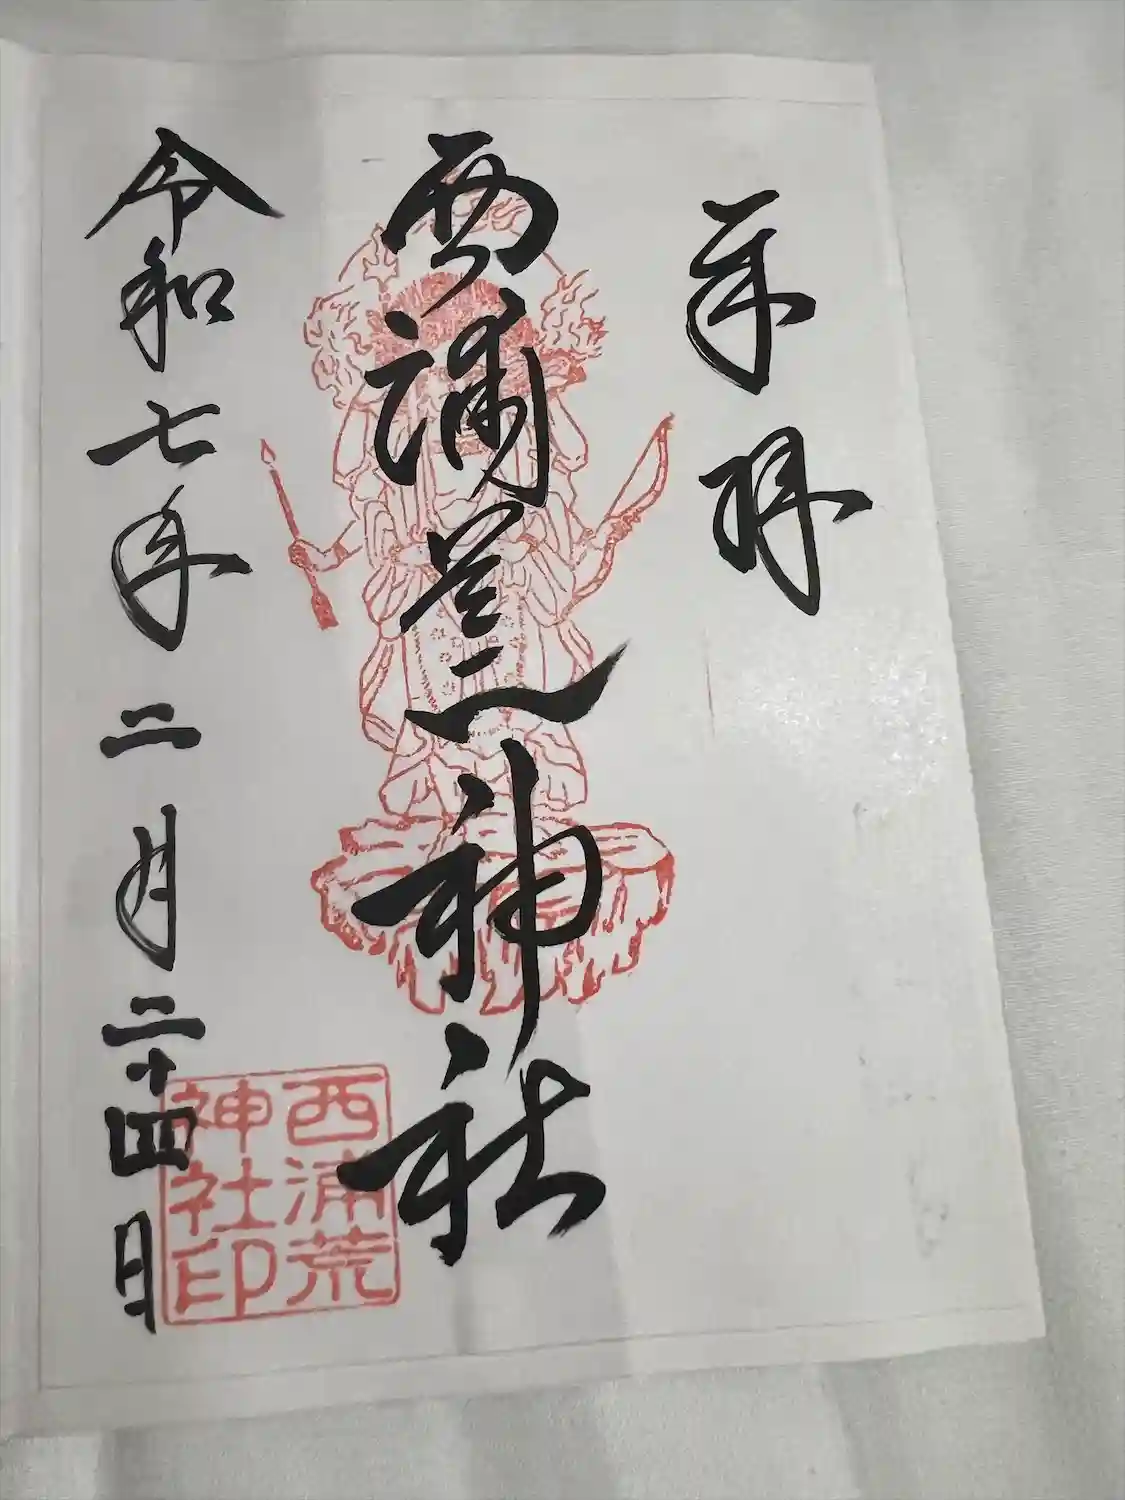 奉拝
西浦荒神社
令和七年二月二十四日
西浦荒
神社印